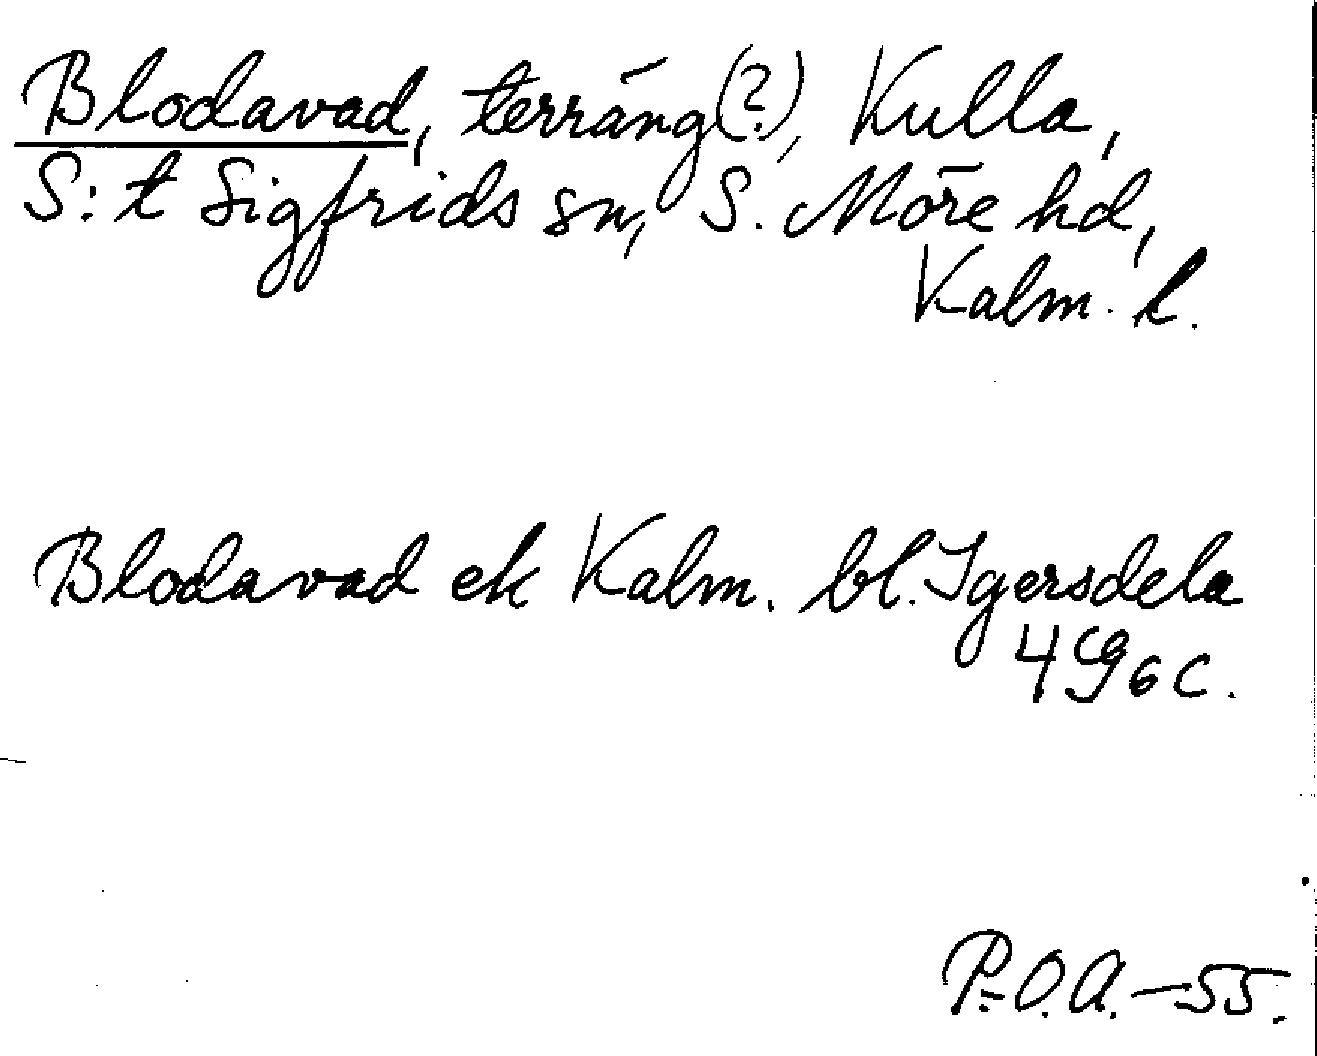 Blodavad, terräng(?), Kulla,
S:t Sigfrids sn, S. Möre hd,
Kalm. l.
Blodavad ek Kalm. bl. Igersdela
4g6c.
P.O.A.—55.